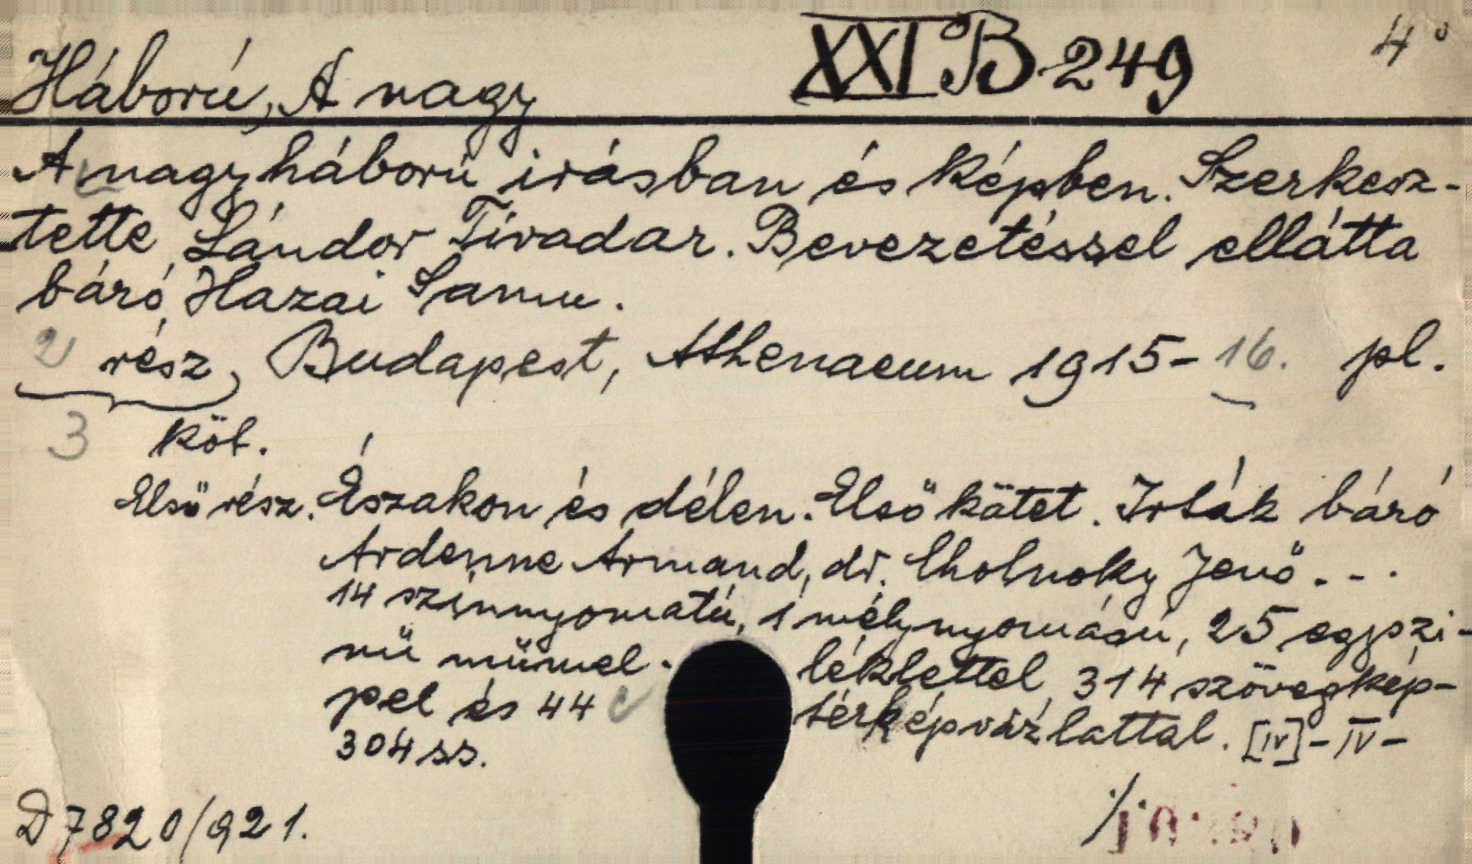 XXI B 249 4°
Háború, A nagy
A nagy háború irásban és képben. Szerkesz-
tette Sándor Tivadar. Bevezetéssel ellátta
báró Hazai Samu.
2 rész, Budapest, Athenaeum 1915-16. pl.
3 köt.
Első rész. Északon és délen. Első kötet. Irták báró
Ardenne Armand, dr. Cholnoky Jenő...
14 szinnyomatú, 1 mélynyomású, 25 egyszi-
nü mümel- léklettel, 314 szövegkép-
pel és 44 térképvázlattal. [IV]-IV-
304 ss.
D 7820/921. ./.